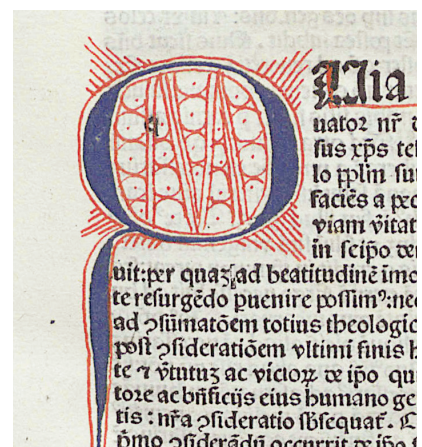 Q Uia
uatoꝛ nr̄
ſus xp̄s
lo pp̄lm̄
faciēs a
viam v̄itat
in ſeip̄o
uit:per quaꝫ ad beatitudinē īmo
te reſurgēdo puenire poſſimꝰ:nec
ad ꝯſūmatōem totius theologic
poſt ꝯſideratiōem vltimi finis h
te ⁊ v̄tutuꝫ ac vicioꝝ de ip̄o qui
toꝛe ac bn̄ficijs eius humano ge
tis : nr̄a ꝯſideratio ſb̄ſequat᷑. C
ꝯſiderādū occurrit